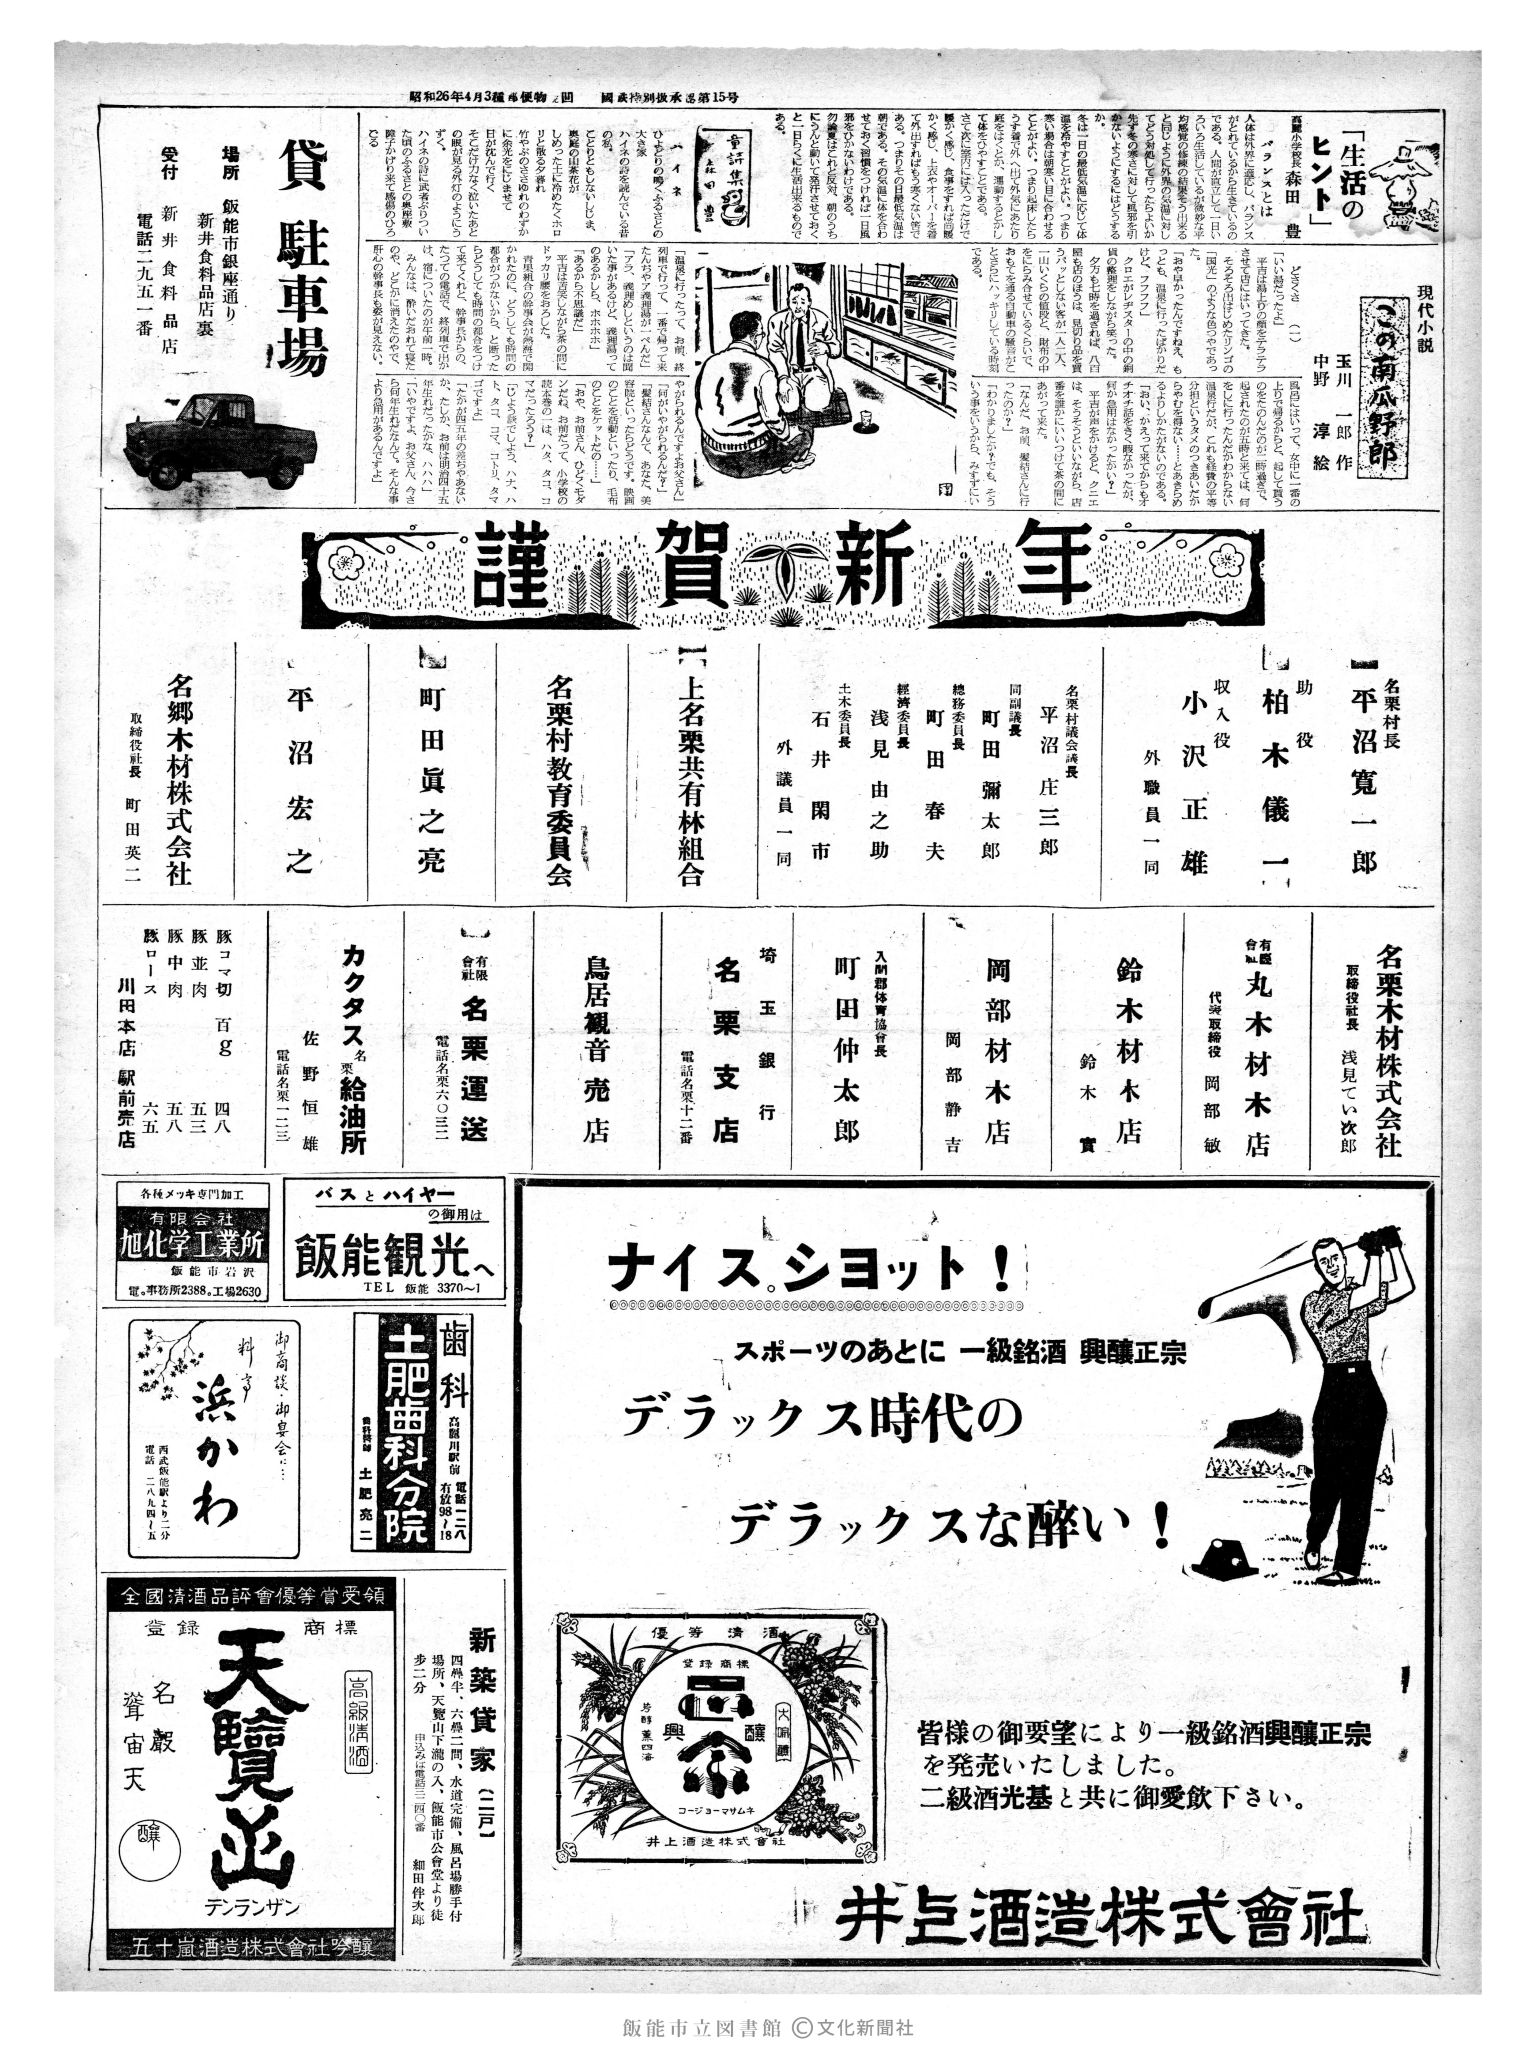 昭和26年4月3種郵便物
國鉄特別扱承認第15号
「生活の
ヒント」
高麗小学校長 森田豊
バランスとは
人体は外界に適応し、バランス
がとれているから生きているの
である。人間が直立して一日い
ろいろ生活しているが微妙な平
均感覚の修練の結果そう出来る
と同じように外界の気温に対し
てどう対処して行ったらよいか
先ず冬の寒さに対して風邪を引
かないようにするにはどうする
か。
冬は一日の最低気温に応じて体
温を冷やすことがよい。つまり
寒い場合は朝寒い目に合わせる
ことがよい。つまり起床したら
うす着で外へ出て外気にあたり
庭をはくとか、運動するとかし
て体をひやすことである。
さて次に室内には入っただけで
暖かく感じ、食事をすれば尚暖
かく感じ、上衣やオーバーを着
て外出すればもう寒くない筈で
ある。つまりその日最低気温は
朝である。その気温に体を合わ
せておく習慣をつければ一日風
邪をひかないわけである。
勿論夏はこれと反対、朝のうち
にうんと動いて発汗させておく
と一日らくに生活出来るもので
ある。
童詩集
森田豊
ハイネ
ひよどりの鳴くふるさとの
大き家
ハイネの詩を読んでいる昔
の私。
ことりともしないしじま、
奥庭の山茶花が
しめった土に冷めたくホロ
リと散る夕暮れ
竹やぶのささゆれのわずか
に余光をにじませて
日が沈んで行く
そこだけ力なく泣いたあと
の眼が見る外灯のようにう
ハイネの詩に武者ぶりつい
た頃のふるさとの奥座敷
障子かげり来て感傷のひろ
でる
現代小説
この南瓜野郎
玉川一郎作
中野淳絵
どさくさ(一)
「いい湯だったよ」
平吉は湯上りの顔をテラテラ
させて店にはいってきた。
そろそろ出はじめたリンゴの
「国光」のような色つやであっ
た。
「おや早かったんですねえ、も
っとも、温泉に行ったばかりだ
けど、フフフフ」
クロエがレヂスターの中の銅
貨の整理をしながら笑った。
夕方も七時を過ぎれば、八百
屋も店のほうは、見切り品を買
うパッとしない客が一人二人、
一山いくらの値段と、財布の中
をにらみ合せているくらいで、
おもてを通る自動車の騒音がこ
とさらにハッキリしている時刻
である。
風呂にはいって、女中に一番の
上りで帰るからと、起して貰う
のをたのんだのが二時過ぎで、
起されたのが五時と来ては、何
をしに行ったんだかわからない
温泉行だが、これも経費の平等
分担というタメのつきあいだか
らやむを得ない……とあきらめ
るよりしかたがないのである。
「おい、かえって来てからもオ
チオチ話をきく暇なかったが、
何か急用はなかったかい?」
平吉が声をかけると、クニエ
は、そうそうといいながら、店
番を誰かにいいつけて茶の間に
あがって来た。
「なんだ、お前、髪結さんに行
ったのか?」
「わかりましたか?でも、そう
いう事をいうから、みすずにい
「温泉に行ったって、お前、終
列車で行って、一番で帰って来
たんぢやア義理湯が一ぺんだ」
「アラ、義理めしというのは聞
いた事があるけど、義理湯って
のあるかしら、ホホホホ」
「あるから不思議だ」
平吉は苦笑しながら茶の間に
ドッカリ腰をおろした。
青果組合の幹事会が熱海で開
かれたのに、どうしても時間の
都合がつかないから、と断った
らどうしても時間の都合をつけ
て来てくれと、幹事長からの、
たつての電話で、終列車で出か
け、宿についたのが午前一時、
みんなは、酔いだおれて寝た
のや、どこかに消えたのやで、
肝心の幹事長も姿が見えない。
やがられるんですよお父さん」
「何がいやがられるんだ?」
「髪結さんなんて、あなた、美
容院といったらどうです。映画
のことを活動といったり、毛布
のことをケットだの……」
「おや、お前さん、ひどくモダ
ンだね、お前だって、小学校の
読本巻の一は、ハタ、タコ、コ
マだったろう?」
「じょう談でしょう、ハナ、ハ
ト、タコ、コマ、コトリ、タマ
ゴですよ」
「たかが四五年の差ぢやあない
か、たしか、お前は明治四十五
年生れだったかな、ハハハ」
「いやですよ、お父さん、今さ
ら何年生れだなんて。そんな事
より急用があるんですよ」
貸駐車場
場所 飯能市銀座通り
新井食料品店裏
受付 新井食料品店
電話二九五一番
謹賀新年
名栗村長
平沼寛一郎
助役
柏木儀一
収入役
小沢正雄
外職員一同
名栗村議会議長
平沼庄三郎
同副議長
町田彌太郎
總務委員長
町田春夫
經濟委員長
浅見由之助
土木委員長
石井閑市
外議員一同
上名栗共有林組合
名栗村教育委員会
町田眞之亮
平沼宏之
名郷木材株式会社
取締役社長 町田英二
名栗木材株式会社
取締役社長 浅見てい次郎
有限會社 丸木材木店
代表取締役 岡部敏
鈴木材木店
鈴木實
岡部材木店
岡部静吉
入間郡体育協會長
町田仲太郎
埼玉銀行
名栗支店
電話名栗十二番
鳥居観音売店
有限會社 名栗運送
電話名栗六〇三二
カクタス名栗給油所
佐野恒雄
電話名栗一二三
豚コマ切 百g 四八
豚並肉 五三
豚中肉 五八
豚ロース 六五
川田本店 駅前売店
各種メッキ専門加工
有限会社
旭化学工業所
飯能市岩沢
電。事務所2388。工場2630
バスとハイヤー
の御用は
飯能観光へ
TEL 飯能 3370〜1
御商談・御宴会に…
料亭
浜かわ
西武飯能駅より二分
電話 二八九四〜五
歯科
高麗川駅前
電話一二八
有放98〜18
土肥歯科分院
歯科医師 土肥亮二
全國清酒品評會優等賞受領
登録商標
高級清酒
天覽山
テンランザン
名嚴
聳宙天
釀
五十嵐酒造株式會社吟釀
新築貸家(二戸)
四疊半、六疊二間、水道完備、風呂場勝手付
場所、天覽山下瀧の入、飯能市公會堂より徒
歩二分
申込みは電話三二四〇番 細田伴次郎
ナイスショット!
スポーツのあとに 一級銘酒 興釀正宗
デラックス時代の
デラックスな醉い!
優等清酒
登録商標
正宗
興釀
大吟釀
芳醇薫四海
コージョーマサムネ
井上酒造株式會社
皆様の御要望により一級銘酒興釀正宗
を発売いたしました。
二級酒光基と共に御愛飲下さい。
井上酒造株式會社
飯能市立図書館 ©文化新聞社